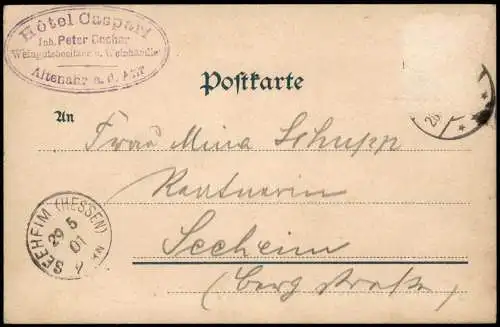 Hôtel Caspari
Inh. Peter
Weingutsbesitzer u. Weinhändler
Altenahr a. d. Ahr
Postkarte
An
Frau Mina Schupp
Rentnerin
Seeheim
(Bergstraße)
SEEHEIM (HESSEN)
29 5
01